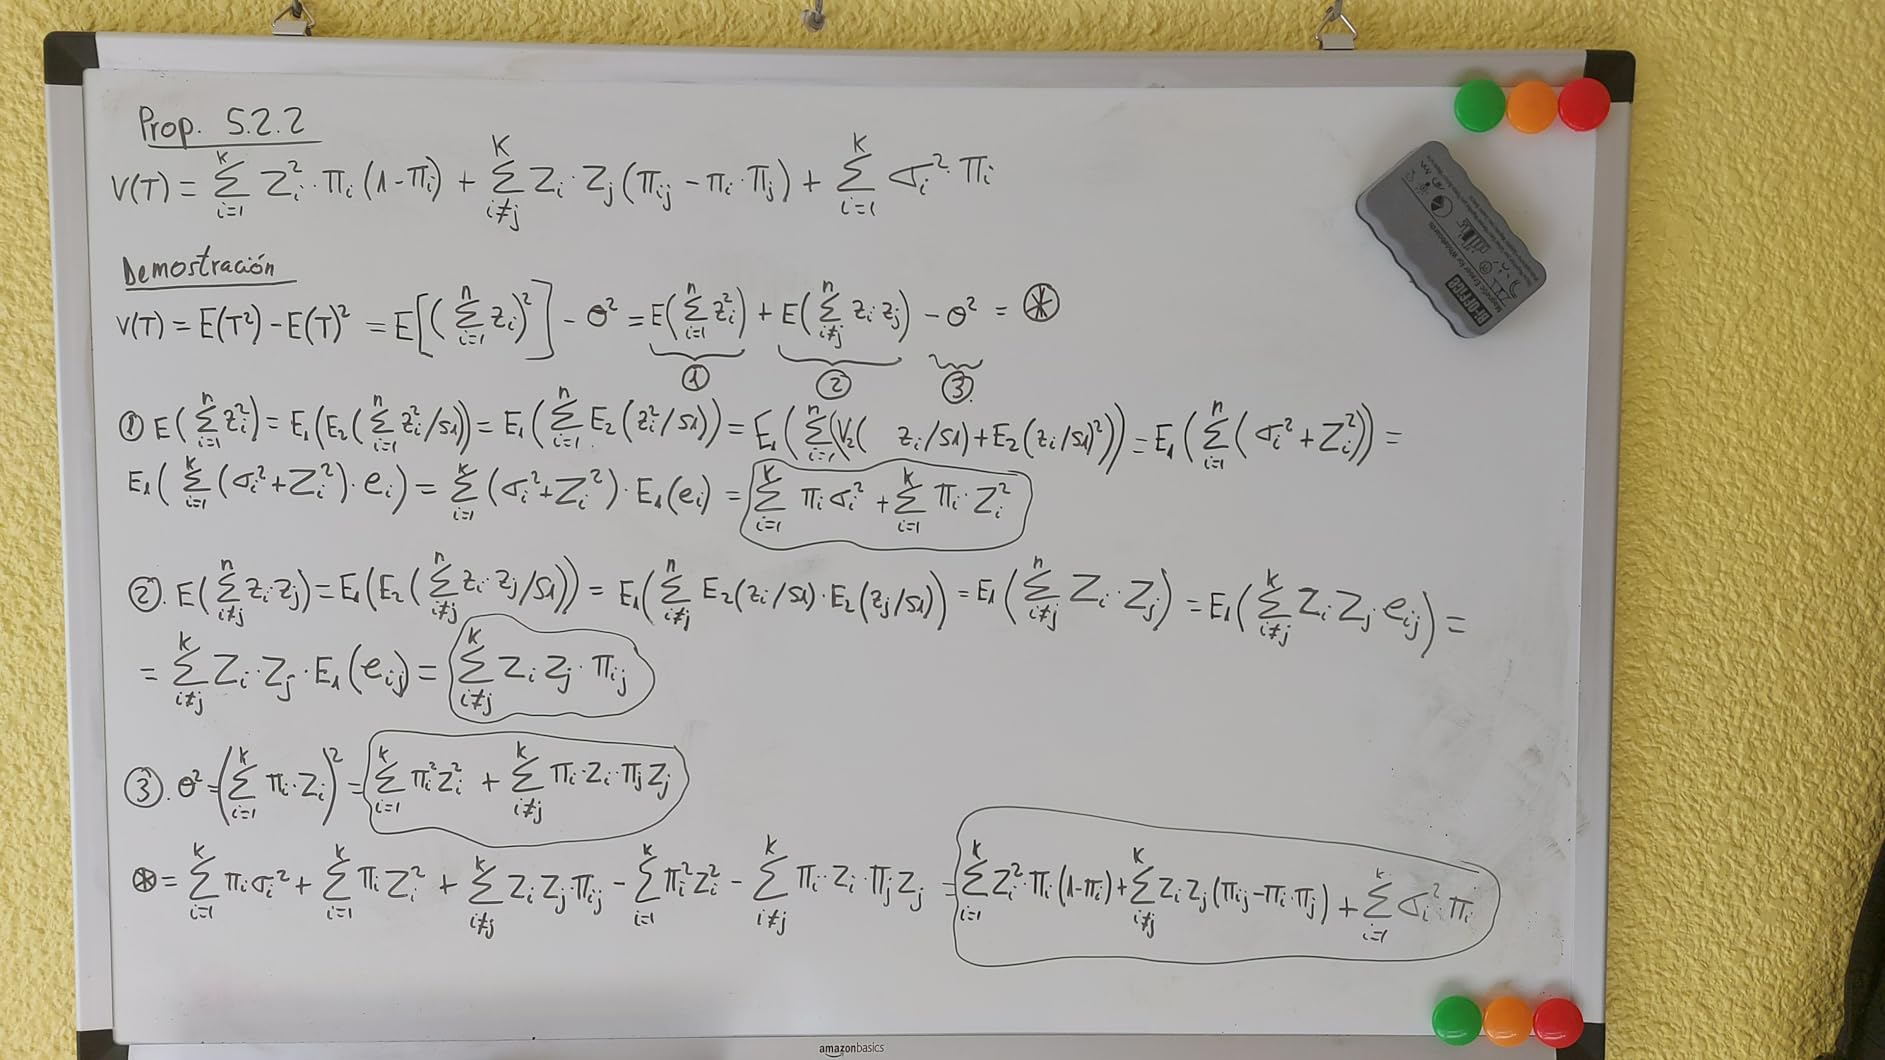 Prop. 5.2.2
V(T) = Σ_{i=1}^{K} Z_i² · π_i (1-π_i) + Σ_{i≠j}^{K} Z_i · Z_j (π_ij - π_i · π_j) + Σ_{i=1}^{K} σ_i² · π_i
Demostración
V(T) = E(T²) - E(T)² = E[(Σ_{i=1}^{n} z_i)²] - θ² = E(Σ_{i=1}^{n} z_i²) + E(Σ_{i≠j}^{n} z_i z_j) - θ² = ⊛
① ② ③.
① E(Σ_{i=1}^{n} z_i²) = E₁(E₂(Σ_{i=1}^{n} z_i²/s1)) = E₁(Σ_{i=1}^{n} E₂(z_i²/s1)) = E₁(Σ_{i=1}^{n} (V₂( z_i/s1) + E₂(z_i/s1)²)) = E₁(Σ_{i=1}^{n} (σ_i² + Z_i²)) =
E₁(Σ_{i=1}^{K} (σ_i² + Z_i²) · e_i) = Σ_{i=1}^{K} (σ_i² + Z_i²) · E₁(e_i) = Σ_{i=1}^{K} π_i σ_i² + Σ_{i=1}^{K} π_i · Z_i²
②. E(Σ_{i≠j}^{n} z_i · z_j) = E₁(E₂(Σ_{i≠j}^{n} z_i · z_j/s1)) = E₁(Σ_{i≠j}^{n} E₂(z_i/s1) · E₂(z_j/s1)) = E₁(Σ_{i≠j}^{n} Z_i · Z_j) = E₁(Σ_{i≠j}^{K} Z_i Z_j e_ij) =
= Σ_{i≠j}^{K} Z_i · Z_j · E₁(e_ij) = Σ_{i≠j}^{K} Z_i Z_j · π_ij
③. θ² = (Σ_{i=1}^{K} π_i · Z_i)² = Σ_{i=1}^{K} π_i² Z_i² + Σ_{i≠j}^{K} π_i · Z_i · π_j Z_j
⊛ = Σ_{i=1}^{K} π_i σ_i² + Σ_{i=1}^{K} π_i Z_i² + Σ_{i≠j}^{K} Z_i Z_j · π_ij - Σ_{i=1}^{K} π_i² Z_i² - Σ_{i≠j}^{K} π_i · Z_i · π_j Z_j = Σ_{i=1}^{K} Z_i² · π_i (1-π_i) + Σ_{i≠j}^{K} Z_i Z_j (π_ij - π_i · π_j) + Σ_{i=1}^{K} σ_i² π_i
amazonbasics